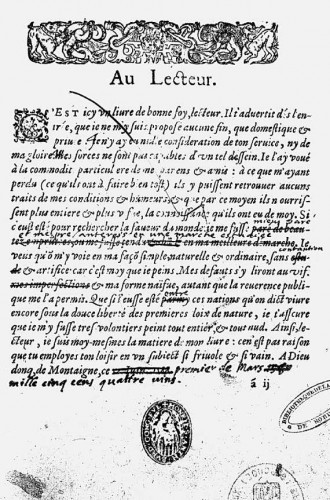 Au Lecteur.
C'EST icy vn liure de bonne foy, lecteur. Il t'aduertit dés l'en-
trée, que ie ne m'y suis proposé aucune fin, que domestique &
priuée. Ie n'y ay eu nulle consideration de ton seruice, ny de
ma gloire. Mes forces ne sont pas capables d'vn tel dessein. Ie l'ay voué
à la commodité particuliere de mes parens & amis: à ce que m'ayant
perdu (ce qu'ils ont à faire bien tost) ils y puissent retrouuer aucuns
traits de mes conditions & humeurs, & que par ce moyen ils nourris-
sent plus entiere & plus vifue, la connoissance qu'ils ont eu de moy. Si
c'eust esté pour rechercher la faueur du monde, ie me fusse paré de beau-
tez empruntées,
en ma meilleure démarche. Ie
veus qu'on m'y voie en ma façon simple, naturelle & ordinaire, sans
contantion
& artifice: car c'est moy que ie peins. Mes defauts s'y liront au vif,
mes imperfections & ma forme naïfue, autant que la reuerence publi-
que me l'a permis. Que si i'eusse esté parmy ces nations qu'on dict viure
entre
encore sous la douce liberté des premieres loix de nature, ie t'asseure
que ie m'y fusse tres volontiers peint tout entier, & tout nud. Ainsi, le-
cteur, ie suis moy-mesmes la matiere de mon liure: ce n'est pas raison
que tu employes ton loisir en vn subiect si friuole & si vain. A Dieu
donq, de Montaigne, ce premier de Mars
mille cinq cens quattre vins.
ã ij